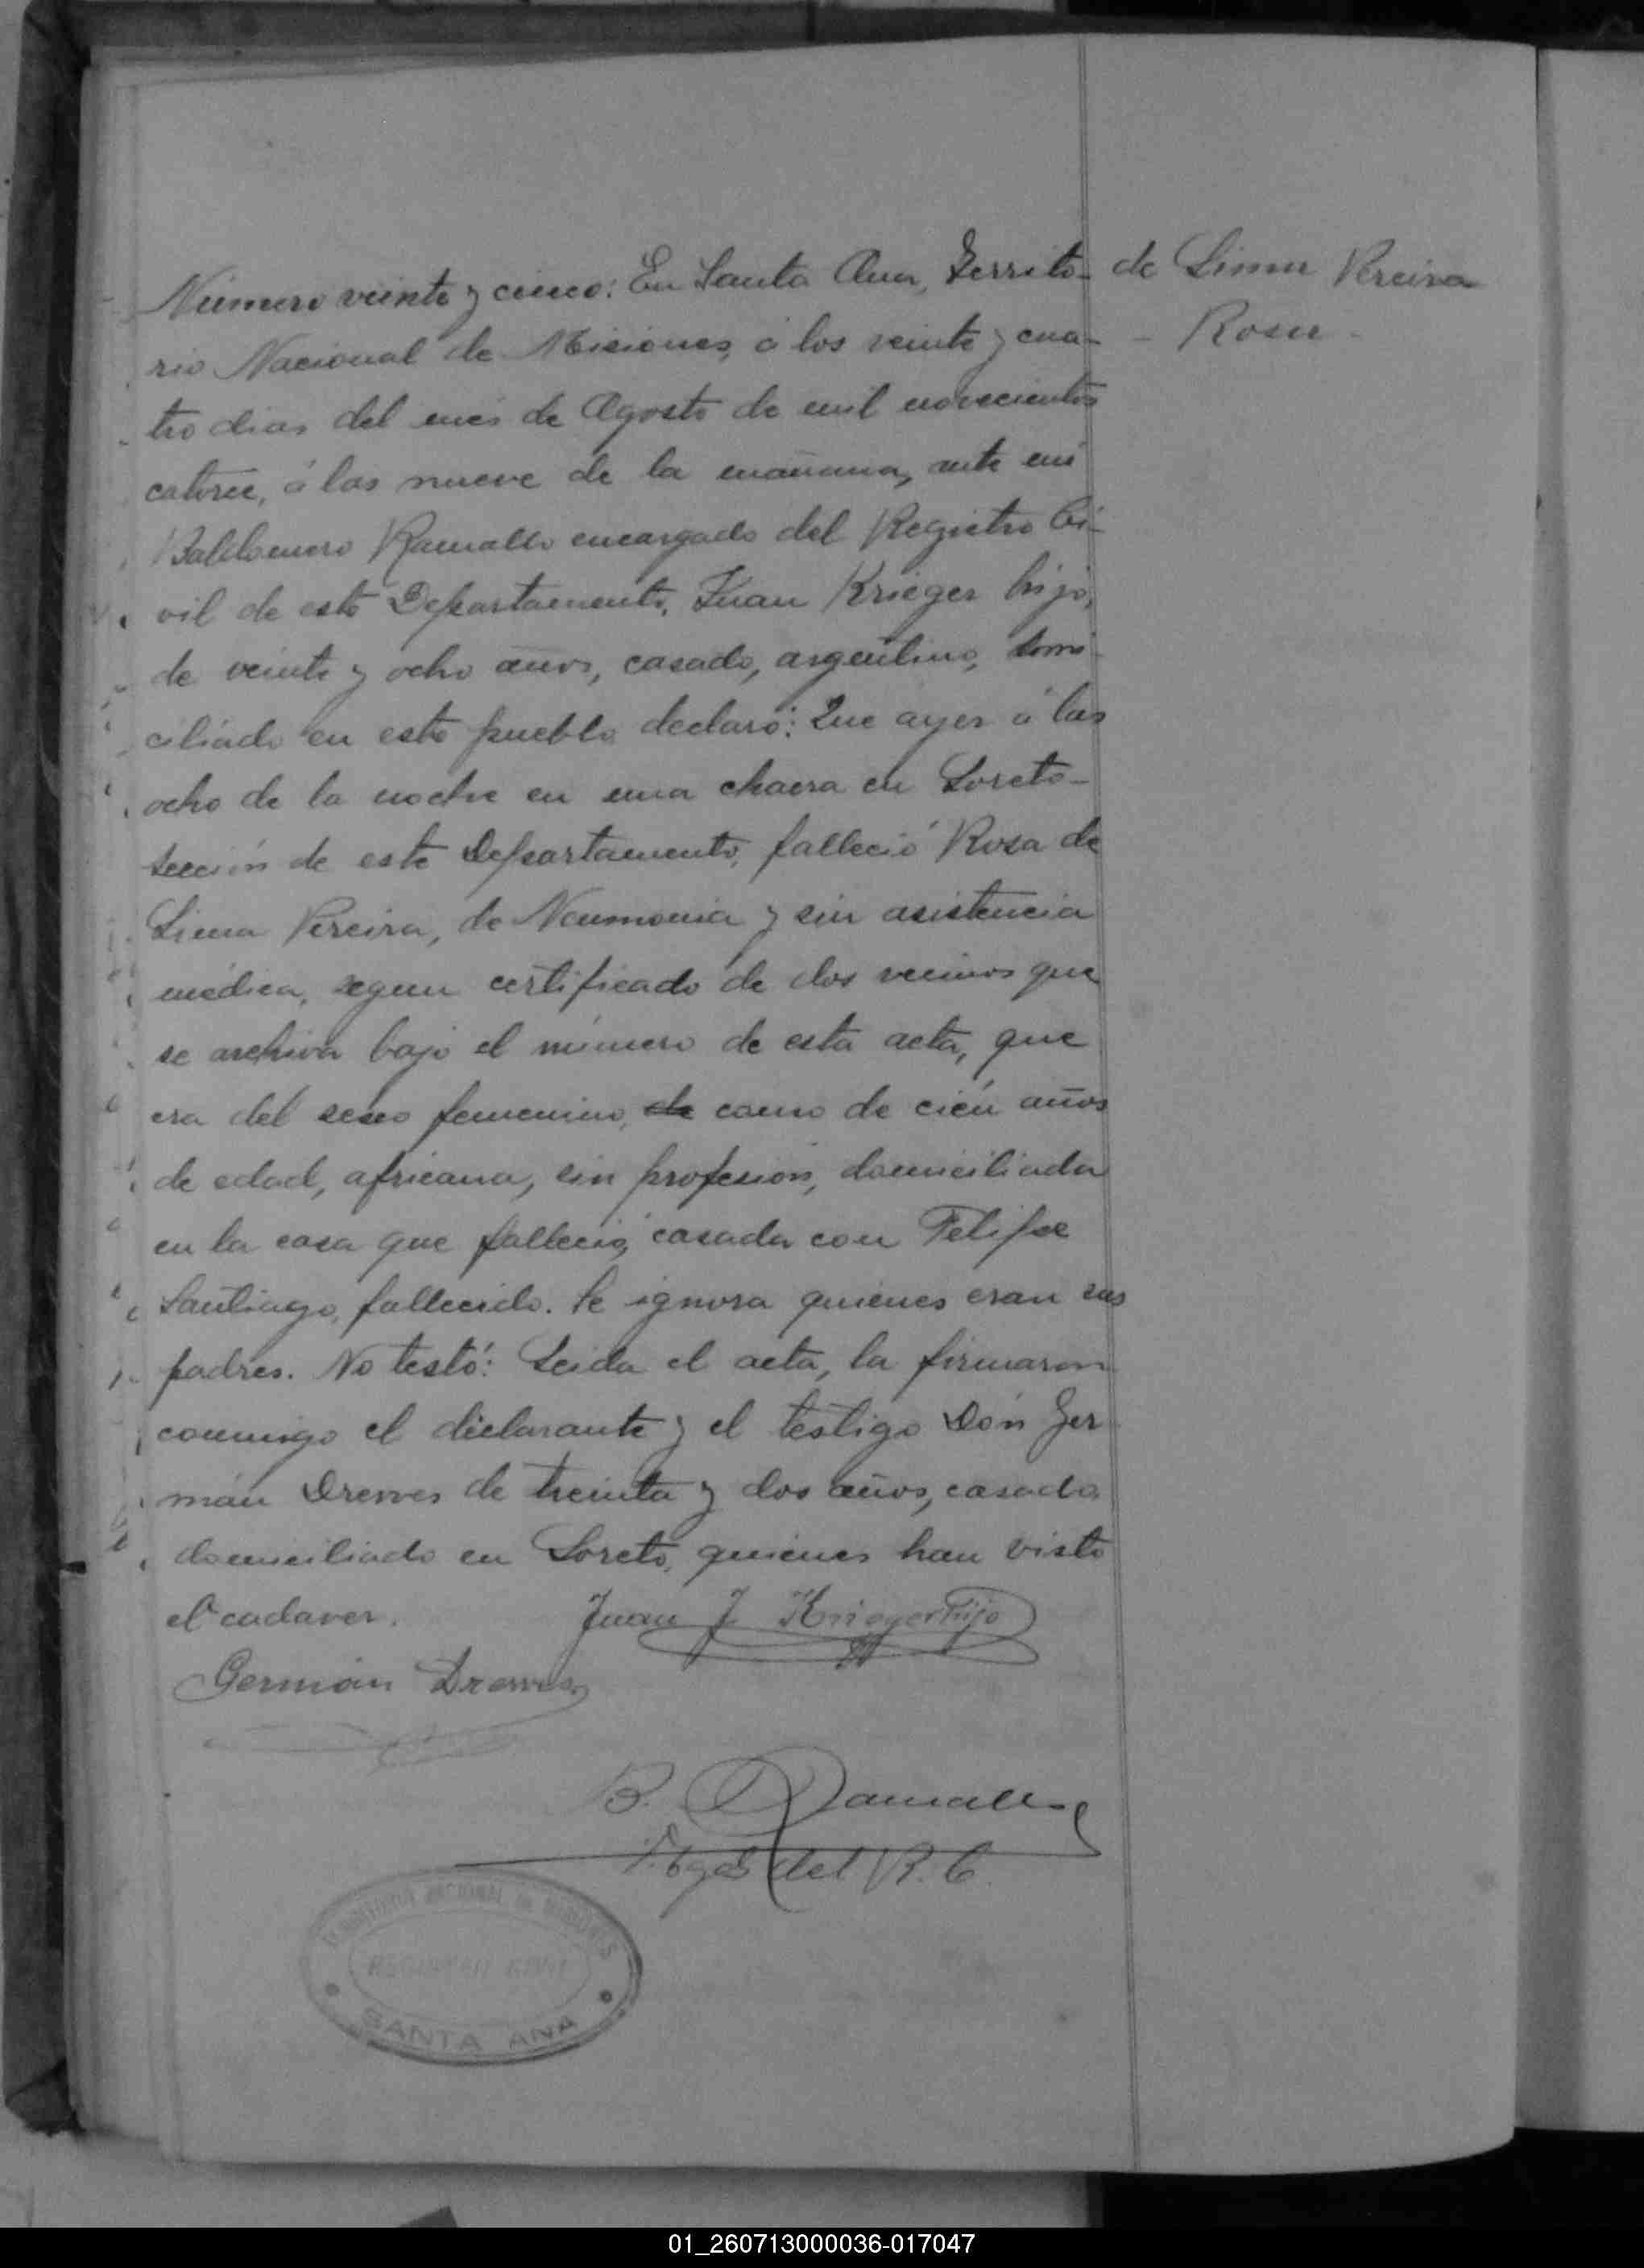 Número veinte y cinco: En Santa Ana, Territo-
rio Nacional de Misiones, á los veinte y cua-
tro dias del mes de Agosto de mil novecientos
catorce, á las nueve de la mañana, ante mi
Baldomero Ramallo encargado del Registro Ci-
vil de este Departamento, Juan Krieger hijo,
de veinte y ocho años, casado, argentino, domi-
ciliado en este pueblo declaró: Que ayer á las
ocho de la noche en una chacra en Loreto-
sección de este Departamento, falleció Rosa de
Lima Pereira, de Neumonia y sin asistencia
médica, segun certificado de dos vecinos que
se archiva bajo el número de esta acta, que
era del sexo femenino, de como de cién años
de edad, africana, sin profesion, domiciliada
en la casa que falleció, casada con Felipe
Santiago, fallecido. Se ignora quienes eran sus
padres. No testó: Leida el acta, la firmaron
conmigo el declarante y el testigo Dón Ger
mán Drewes de treinta y dos años, casado
domiciliado en Loreto, quienes han visto
el cadaver.
Juan J Krieger hijo
Germán Drewes
B. Ramallo
del R. C.
de Lima Pereira
- Rosa -
TERRITORIO NACIONAL DE MISIONES
REGISTRO CIVIL
SANTA ANA
01_260713000036-017047